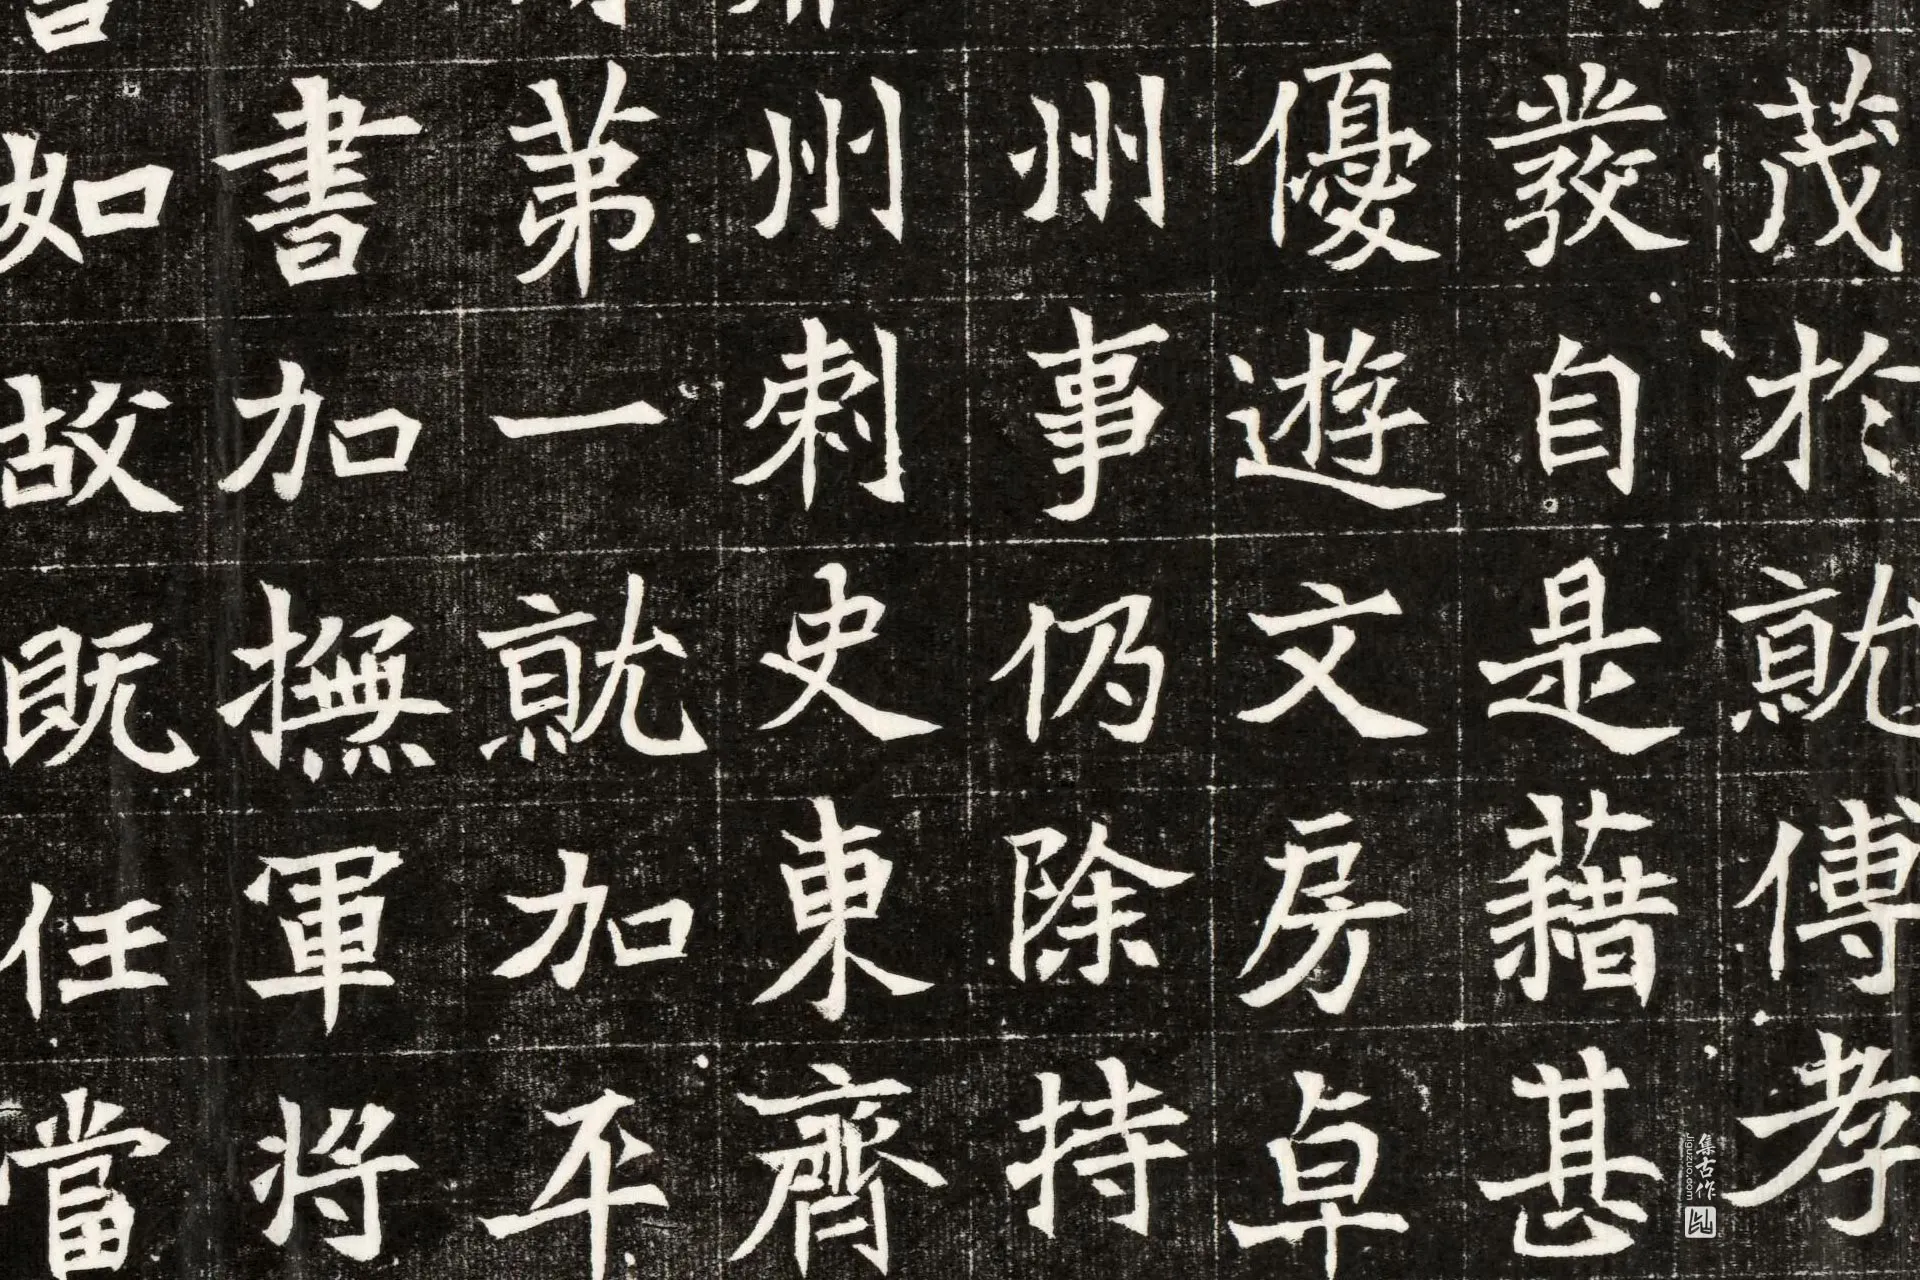 茂於就傅孝
發自是藉甚
優遊文房卓
州事仍除持
州刺史東齊
第一就加平
書加撫軍將
如故既任當
集古作
jiguzuo.com